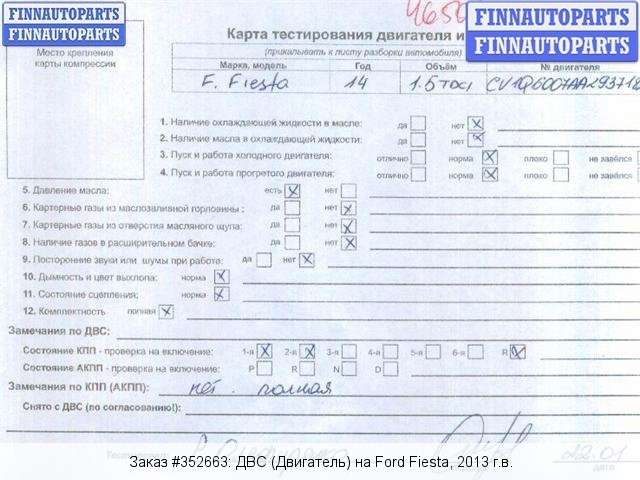 FINNAUTOPARTS
FINNAUTOPARTS
FINNAUTOPARTS
FINNAUTOPARTS
Место крепления
карты компрессии
Карта тестирования двигателя и
(прикалывать к листу разборки автомобиля)
Марка, модель Год Объём № двигателя
F. Fiesta 14 1.5 TDCi
1. Наличие охлаждающей жидкости в масле: да нет
2. Наличие масла в охлаждающей жидкости: да нет
3. Пуск и работа холодного двигателя: отлично норма плохо не завёлся
4. Пуск и работа прогретого двигателя: отлично норма плохо не завёлся
5. Давление масла: есть нет
6. Картерные газы из маслозаливной горловины : да нет
7. Картерные газы из отверстия масляного щупа: да нет
8. Наличие газов в расширительном бачке: да нет
9. Посторонние звуки или шумы при работе: да нет
10. Дымность и цвет выхлопа: норма
11. Состояние сцепления: норма
12. Комплектность полная
Замечания по ДВС:
Состояние КПП - проверка на включение: 1-я 2-я 3-я 4-я 5-я 6-я R
Состояние АКПП - проверка на включение: P R N D
Замечания по КПП (АКПП): нет. полная
Снято с ДВС (по согласованию!):
22.01
дата
Заказ #352663: ДВС (Двигатель) на Ford Fiesta, 2013 г.в.